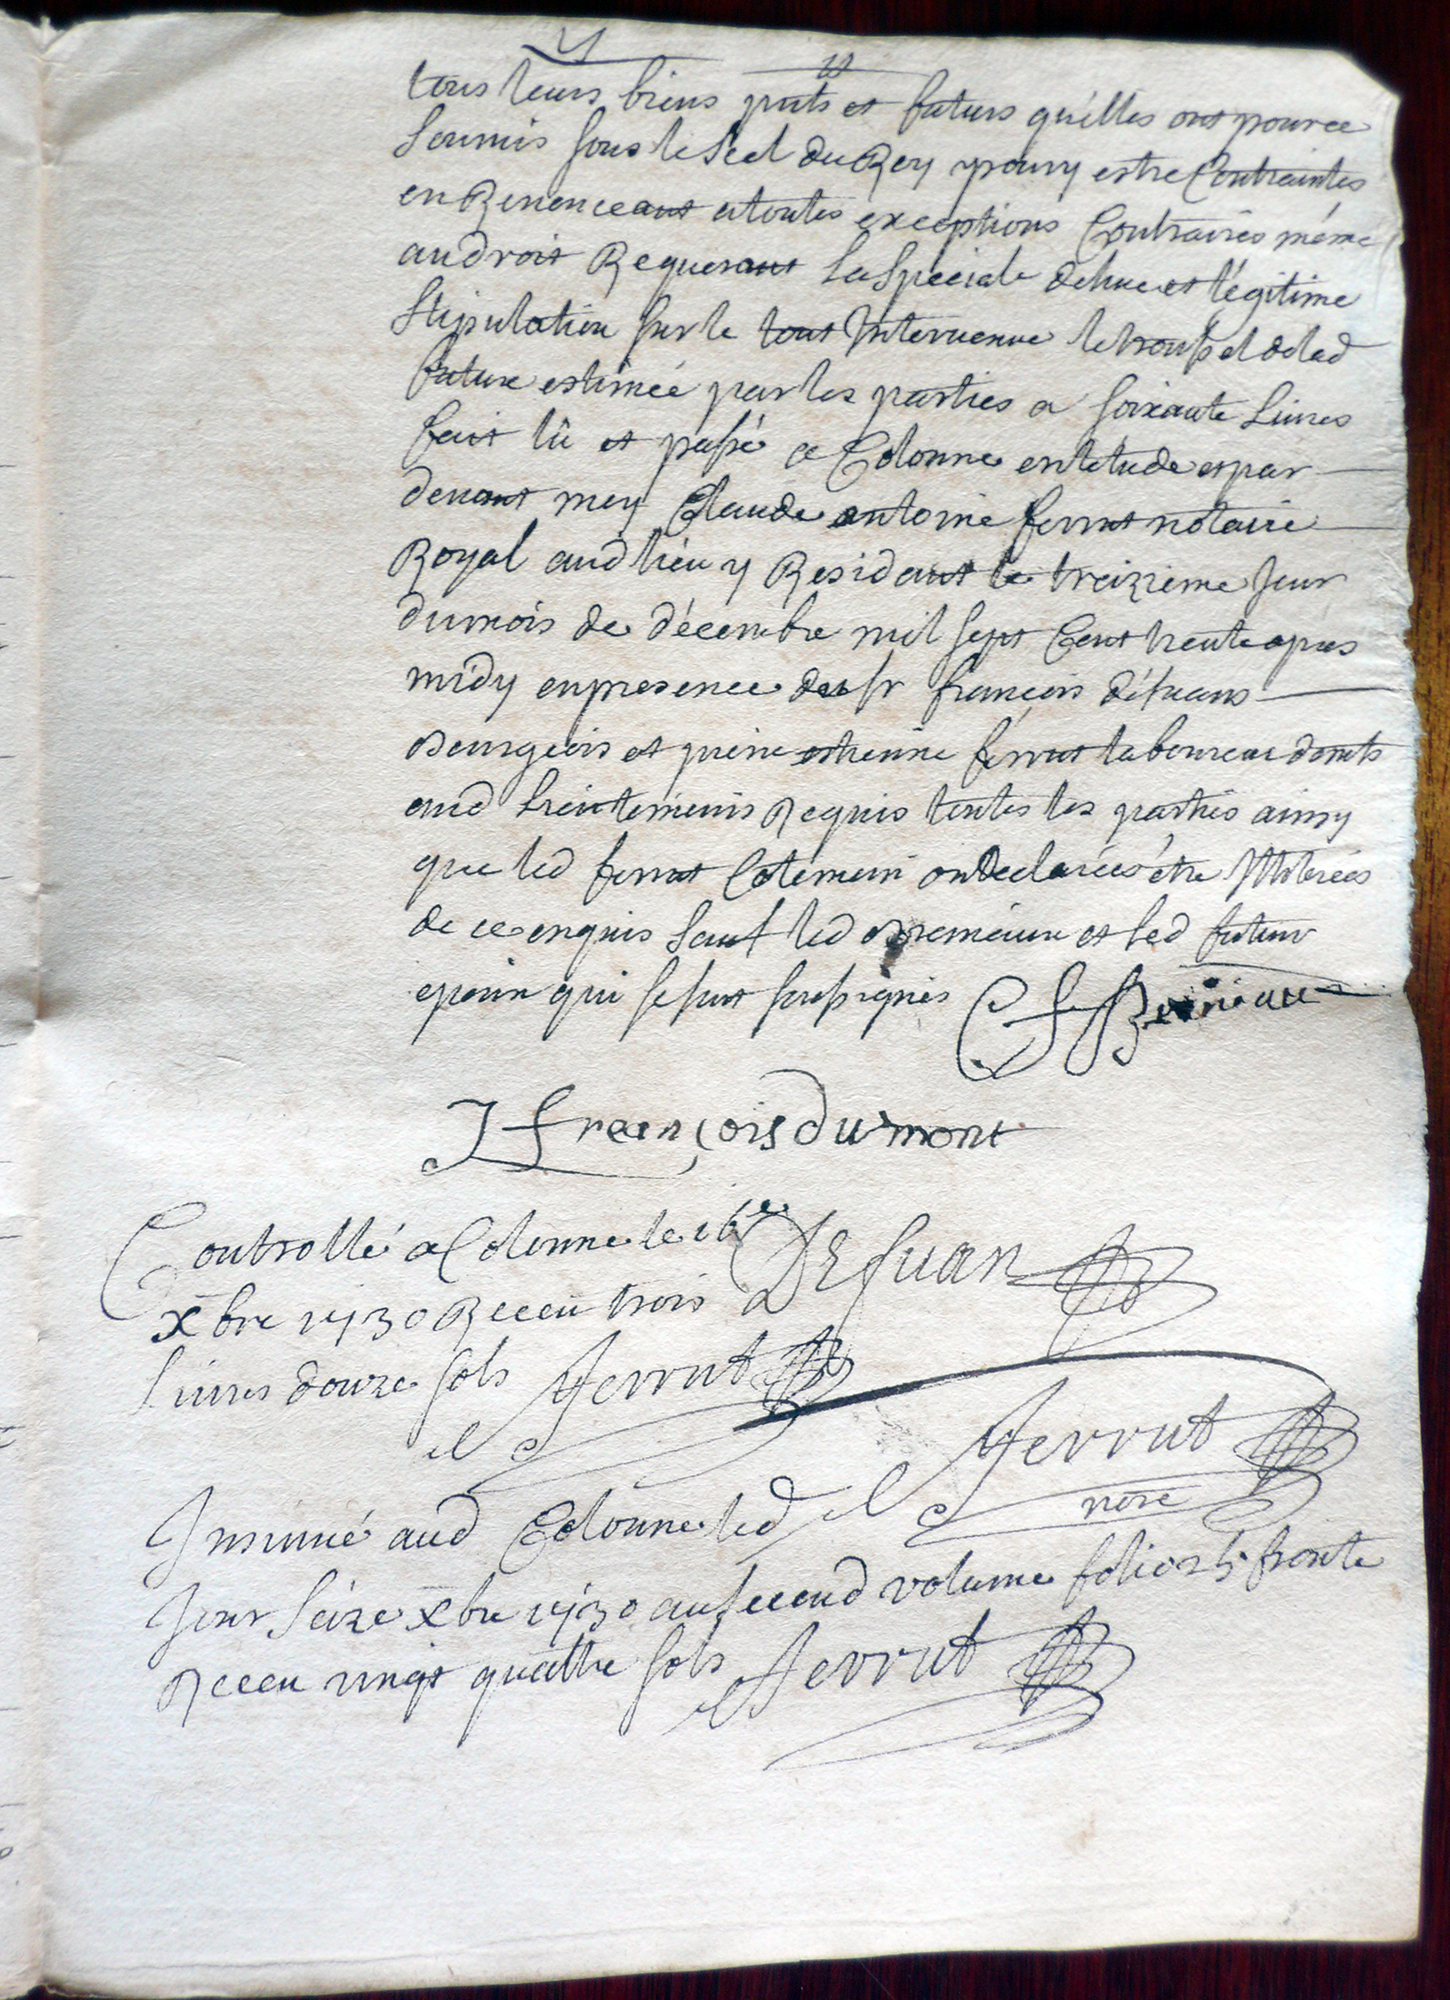 tous leurs biens pnts et futurs qu'elles ont pour ce
soumis sous le Scel du Roy pour y estre Contraintes
en Renonceant a toutes exceptions Contraires même
au droit Requerant la speciale dehue et légitime
Stipulation sur le tout Intervenue le troussel de lad
future estimée par les parties a soixante Livres
fait lû et passé a Colonne en letude et par
devant moy Claude antoine ferrut notaire
Royal aud lieu y Residant le treizieme Jour
du mois de décembre mil sept Cent trente apres
midy en presence de sr françois défuans
Bourgeois et pierre estienne ferrut laboureur
aud lieu temoins Requis toutes les parties ainsy
que led ferrut Cotemoin on declarées étre Illitérées
de ce enquis sauf led et led futur
epoux qui se sont soussignés
J francois dumont
Controllé a Colonne le 16e DEfuan
Xbre 1730 Receu trois
Livres douze sols ferrut
ferrut
nore
Insinué aud Colonne led
Jour Seize Xbre 1730 au second volume folio 25 fronte
Receu vingt quattre sols ferrut